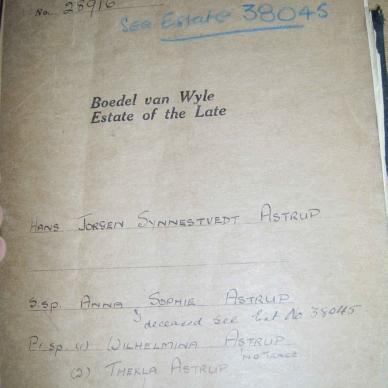 No. 28916
See Estate 38045
Boedel van Wyle
Estate of the Late
Hans Jorgen Synnestvedt Astrup
S.sp. Anna Sophie Astrup
deceased see Est No 38045
Pr. sp. (1) Wilhelmina Astrup
No Trace
(2) Thekla Astrup